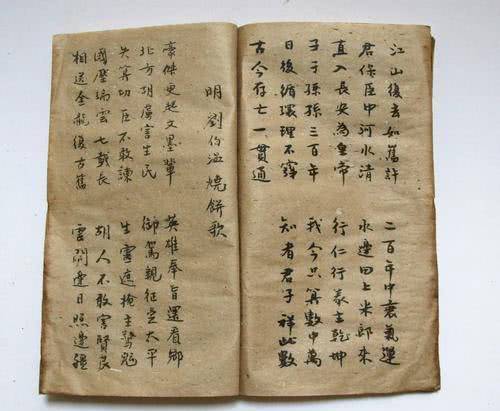 江山復去如舊許 二百年中衰氣運
君保臣中河水清 水邊田上米郎來
直入長安為皇帝 行仁行暴主乾坤
子子孫孫三百年 我今只算數中萬
日後循環理不窮 知者君子祥此數
古今存亡一貫通
明劉伯溫燒餅歌
豪傑更起文墨輩 英雄奉旨還看鄉
北方胡虜害生民 御駕親征定太平
失算功臣不敢諫 生靈遮掩主驚
國壓瑞雲七載長 胡人不敢害賢良
相送金龍復古舊 雲開邊日照邊疆